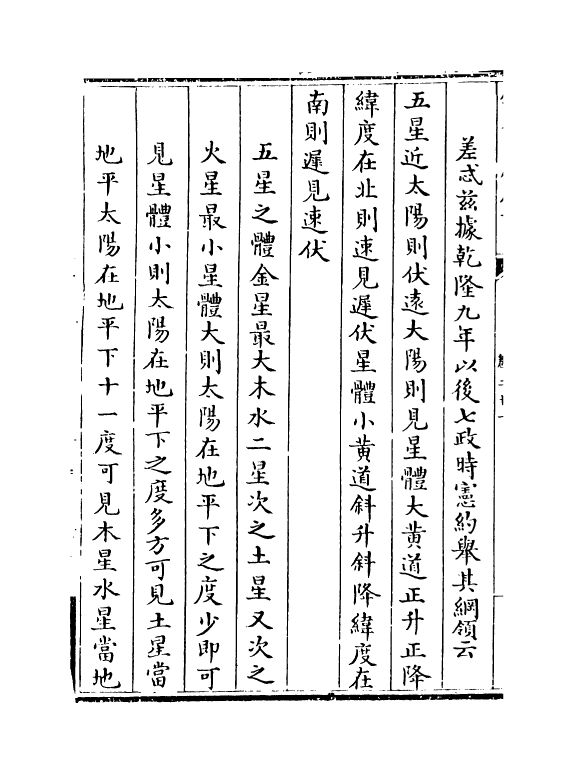 差忒兹據乾隆九年以後七政時憲約舉其綱領云
五星近太陽則伏遠大陽則見星體大黄道正升正降
緯度在北則速見遲伏星體小黄道斜升斜降緯度在
南則遲見速伏
五星之體金星最大木水二星次之土星又次之
火星最小星體大則太陽在地平下之度少即可
見星體小則太陽在地平下之度多方可見土星當
地平太陽在地平下十一度可見木星水星當地